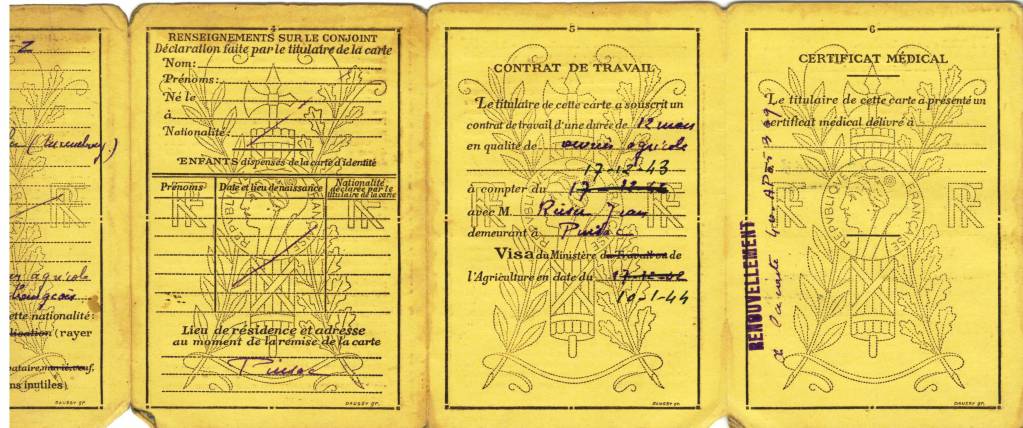 z
(Luxembourg.)
agricole
ette nationalité:
lication (rayer
bataire, marié, veuf,
ns inutiles)
DAUSSY gr.
4
RENSEIGNEMENTS SUR LE CONJOINT
Déclaration faite par le titulaire de la carte
Nom:
Prénoms:
Né le
à
Nationalité:
ENFANTS dispensés de la carte d'identité
Prénoms
Date et lieu de naissance
Nationalité
déclarée par le
titulaire de la carte
RF
RÉPUBLIQUE FRANÇAISE
RF
Lieu de résidence et adresse
au moment de la remise de la carte
DAUSSY gr.
5
CONTRAT DE TRAVAIL
Le titulaire de cette carte a souscrit un
contrat de travail d'une durée de 12 mois
en qualité de ouvrier agricole
17-12-43
à compter du 17-12-42
avec M. Jean
demeurant à
Visa du Ministère du Travail ou de
l'Agriculture en date du 17-12-42
10-1-44
RF
RÉPUBLIQUE FRANÇAISE
RF
DAUSSY gr.
6
CERTIFICAT MÉDICAL
Le titulaire de cette carte a présenté un
certificat médical délivré à
RENOUVELLEMENT
carte
RF
RÉPUBLIQUE FRANÇAISE
RF
DAUSSY gr.